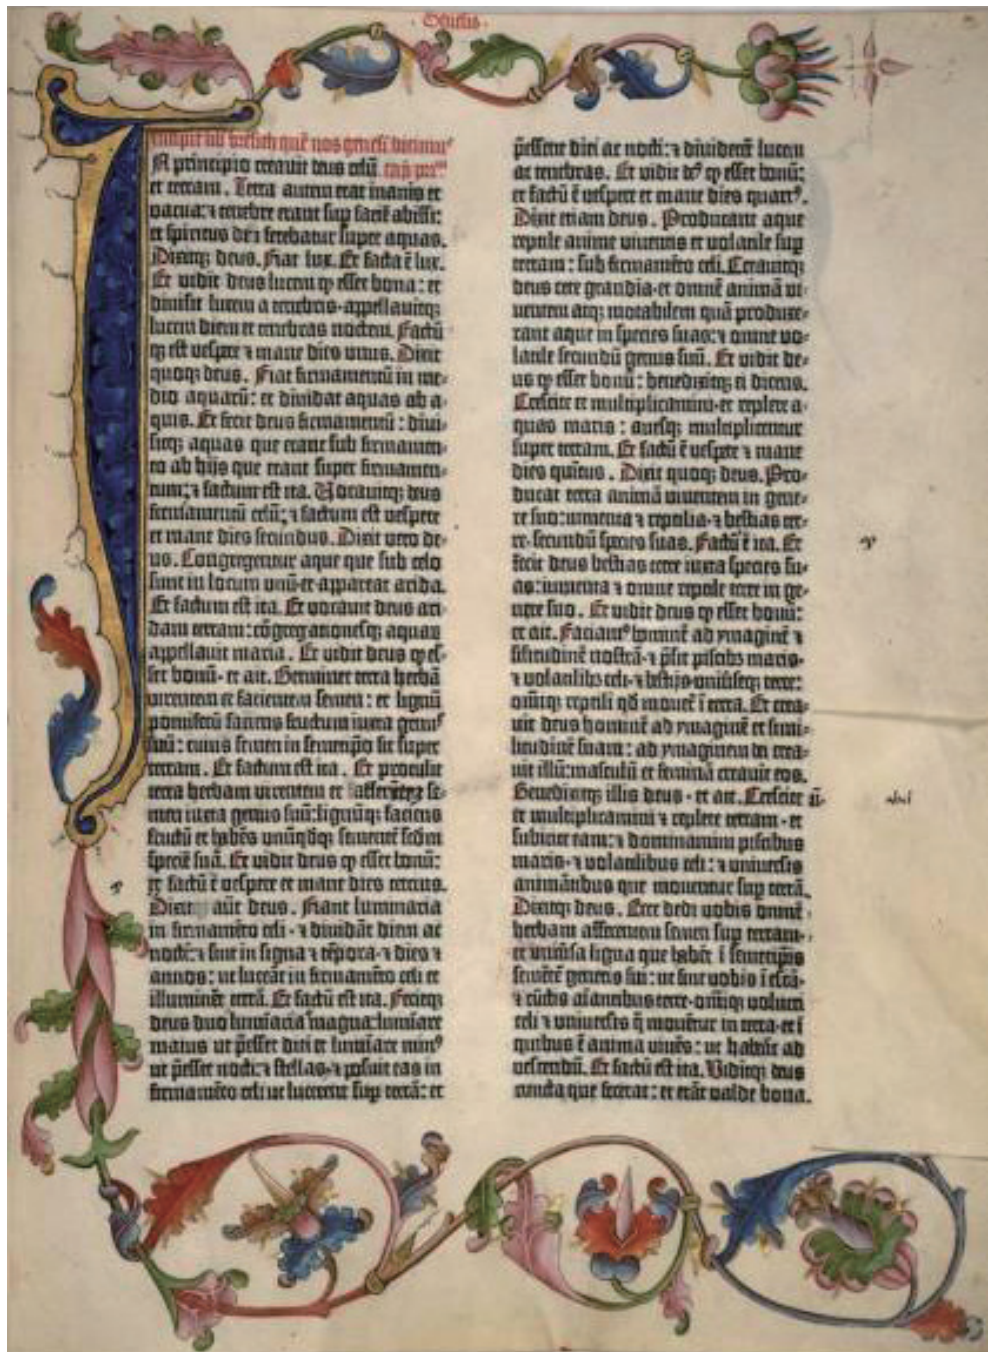 Genesis
Incipit liber bresith quē nos genesim dicimus
In principio creavit deus celū cap̄ pr̄m
et terram. Terra autem erat inanis et
vacua: et tenebre erant sup faciē abissi:
et spiritus dn̄i ferebatur super aquas.
Dixitq; deus. Fiat lux. Et facta ē lux.
Et vidit deus lucem ꝙ esset bona: et
divisit lucem a tenebris · appellavitq;
lucem diem et tenebras noctem. Factū
q; est vespere ⁊ mane dies unus. Dixit
quoq; deus. Fiat firmamentū in me-
dio aquarū: et dividat aquas ab a-
quis. Et fecit deus firmamentū: divi-
sitq; aquas que erant sub firmamen-
to ab hijs que erant super firmamen-
tum: ⁊ factum est ita. Vocavitq; deus
firmamentū celū: ⁊ factum est vespere
et mane dies secundus. Dixit vero de-
us. Congregentur aque que sub celo
sunt in locum unū et appareat arida.
Et factum est ita. Et vocavit deus ari-
dam terram: cōgregationesq; aquas
appellavit maria. Et vidit deus ꝙ es-
set bonū · et ait. Germinet terra herbā
virentem et facientem semen: et lignū
pomiferū faciens fructum iuxta genus
suū: cuius semen in semetip̄o sit super
terram. Et factum est ita. Et protulit
terra herbam virentem et facientē se-
men iuxta genus suū: lignūq; faciens
fructū et habēs unūqdq; sementē scdm
speciē suā. Et vidit deus ꝙ esset bonū:
et factū ē vespere et mane dies tercius.
Dixit aūt deus. Fiant luminaria
in firmamēto celi · ⁊ dividāt diem ac
noctē: ⁊ sint in signa ⁊ tēpora · ⁊ dies ⁊
annos: ut luceāt in firmamēto celi et
illuminēt terrā. Et factū est ita. Fecitq;
deus duo luminaria magna: luminare
maius ut p̄esset diei et luminare minꝰ
ut p̄esset nocti: ⁊ stellas · ⁊ posuit eas in
firmamēto celi ut lucerent sup terrā: et
p̄essent diei ac nocti: ⁊ dividerēt lucem
ac tenebras. Et vidit dꝰ ꝙ esset bonū:
et factū ē vespere et mane dies quartꝰ.
Dixit etiam deus. Producant aque
reptile anime viventis et volatile sup
terram: sub firmamēto celi. Creavitq;
deus cete grandia · et omnē animā vi-
ventem atq; motabilem quā produxe-
rant aque in species suas: ⁊ omne vo-
latile secundū genus suū. Et vidit de-
us ꝙ esset bonū: benedixitq; ei dicens.
Crescite et multiplicamini · et replete a-
quas maris: avesq; multiplicentur
super terram. Et factū ē vespere ⁊ mane
dies quītus. Dixit quoq; deus. Pro-
ducat terra animā viventem in gene-
re suo: iumenta ⁊ reptilia · ⁊ bestias ter-
re · secundū species suas. Factū ē ita. Et
fecit deus bestias terre iuxta species su-
as: iumenta ⁊ omne reptile terre in ge-
nere suo. Et vidit deus ꝙ esset bonū:
et ait. Faciamꝰ hominē ad ymaginē ⁊
similitudinē nostrā · ⁊ p̄sit piscibꝫ maris ·
⁊ volatilibꝫ celi · ⁊ bestijs · universeq; terre:
omīq; reptili qd̄ movet̄ ī terra. Et crea-
vit deus hominē ad ymaginē et simi-
litudinē suam: ad ymaginem dei crea-
vit illū: masculū et feminā creavit eos.
Benedixitq; illis deus · et ait. Crescite
et multiplicamini ⁊ replete terram · et
subicite eam: ⁊ dominamini piscibus
maris · ⁊ volatilibus celi: ⁊ universis
animātibus que moventur sup terrā.
Dixitq; deus. Ecce dedi vobis omnē
herbam afferentem semen sup terram ·
et universa ligna que habēt ī semetip̄is
sementē generis sui: ut sint vobis ī escā ·
⁊ cūctis aīantibus terre · omīq; volucri
celi ⁊ universis q̄ moventur in terra · et ī
quibus ē anima vivēs: ut habeāt ad
vescendū. Et factū est ita. Viditq; deus
cuncta que fecerat: et erāt valde bona.